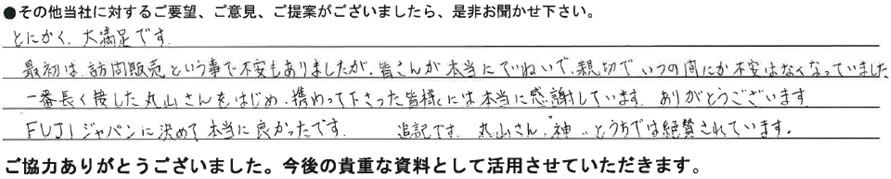 ●その他当社に対するご要望、ご意見、ご提案がございましたら、是非お聞かせ下さい。
とにかく、大満足です。
最初は訪問販売という事で不安もありましたが、皆さんが本当にていねいで、親切でいつの間にか不安はなくなっていました
一番長く接した丸山さんをはじめ、携わって下さった皆様には本当に感謝しています。ありがとうございます
FUJIジャパンに決めて本当に良かったです。　追記です。丸山さん〝神〟とうちでは絶賛されています。
ご協力ありがとうございました。今後の貴重な資料として活用させていただきます。